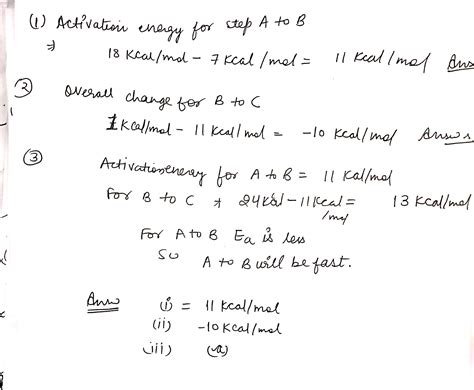 (1) Activation energy for step A to B
⇒ 18 Kcal/mol - 7 Kcal/mol = 11 Kcal/mol Ans
(2) Overall change for B to C
1 Kcal/mol - 11 Kcal/mol = -10 Kcal/mol Answer
(3) Activation energy for A to B = 11 Kcal/mol
for B to C ⇒ 24 Kcal - 11 Kcal/mol = 13 Kcal/mol
For A to B Ea is less
So A to B will be fast.
Answ (i) = 11 Kcal/mol
(ii) -10 Kcal/mol
(iii) (a)